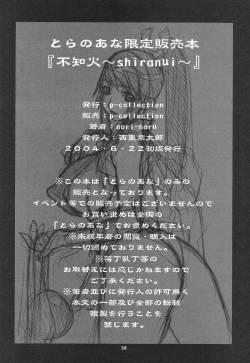 とらのあな限定販売本
『不知火～shiranui～』
発行：p-collection
販売：p-collection
著者：nori-haru
発行人：西東文太郎
2004・6・22初版発行
※この本は「とらのあな」のみの
販売となっております。
イベント等での販売予定はございませんので
お買い求めは全国の
「とらのあな」でお求めください。
※未成年者の閲覧・購入は
一切認めておりません。
※落丁乱丁等の
お取替えには応じかねますので
ご了承ください。
※筆者並びに発行人の許可無く
本文の一部及び全部の転載
複製を行うことを
禁じます。
36